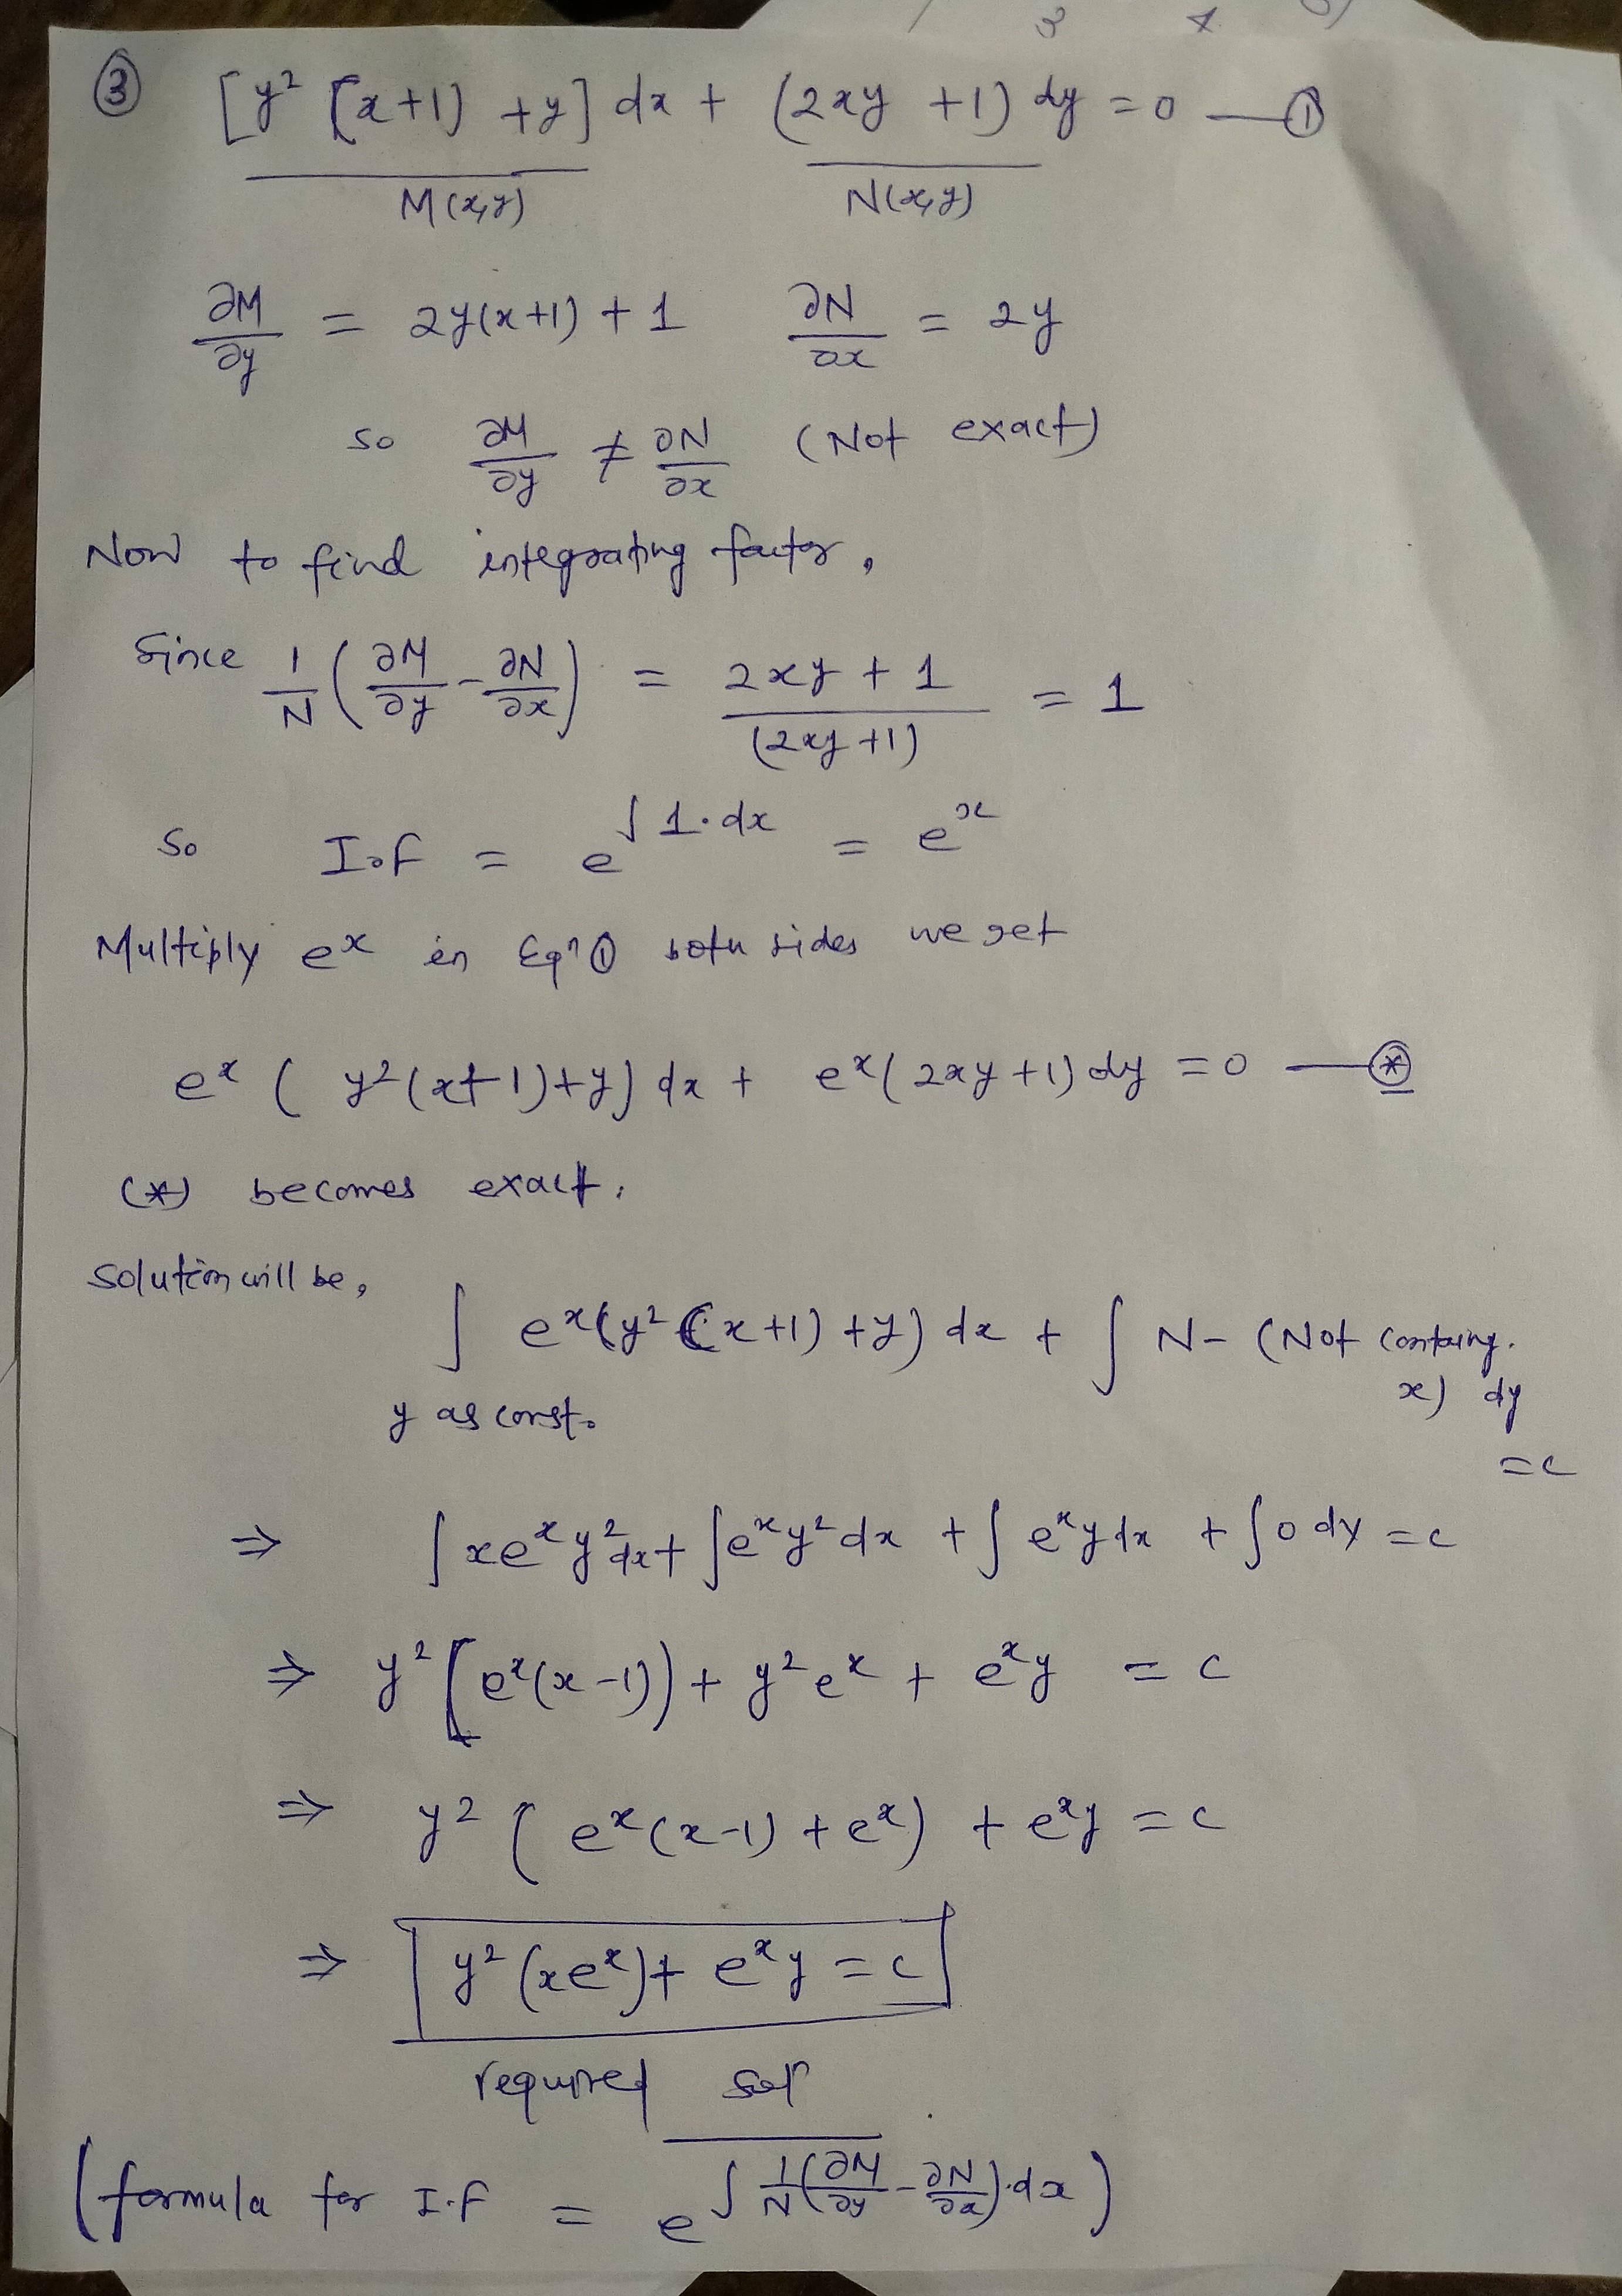 3 4 5)
③ [y² [x+1) + y] dx + (2xy + 1) dy = 0 — ①
M(x,y) N(x,y)
∂M/∂y = 2y(x+1) + 1 ∂N/∂x = 2y
so ∂M/∂y ≠ ∂N/∂x (Not exact)
Now to find integrating factor,
Since 1/N (∂M/∂y - ∂N/∂x) = 2xy + 1 / (2xy + 1) = 1
So I.F = e^∫1.dx = e^x
Multiply e^x in Eqⁿ ① both sides we get
e^x ( y²(x+1)+y) dx + e^x(2xy+1) dy = 0 — (*)
(*) becomes exact.
Solution will be, ∫ e^x(y²(x+1) + y) dx + ∫ N- (Not containg. x) dy = c
y as const.
⇒ ∫xe^x y² dx + ∫e^x y² dx + ∫e^x y dx + ∫0 dy = c
⇒ y² [e^x(x-1)) + y² e^x + e^x y = c
⇒ y² ( e^x(x-1) + e^x) + e^x y = c
⇒ y² (xe^x) + e^x y = c
required solⁿ
(formula for I.F = e^∫ 1/N (∂M/∂y - ∂N/∂x).dx )